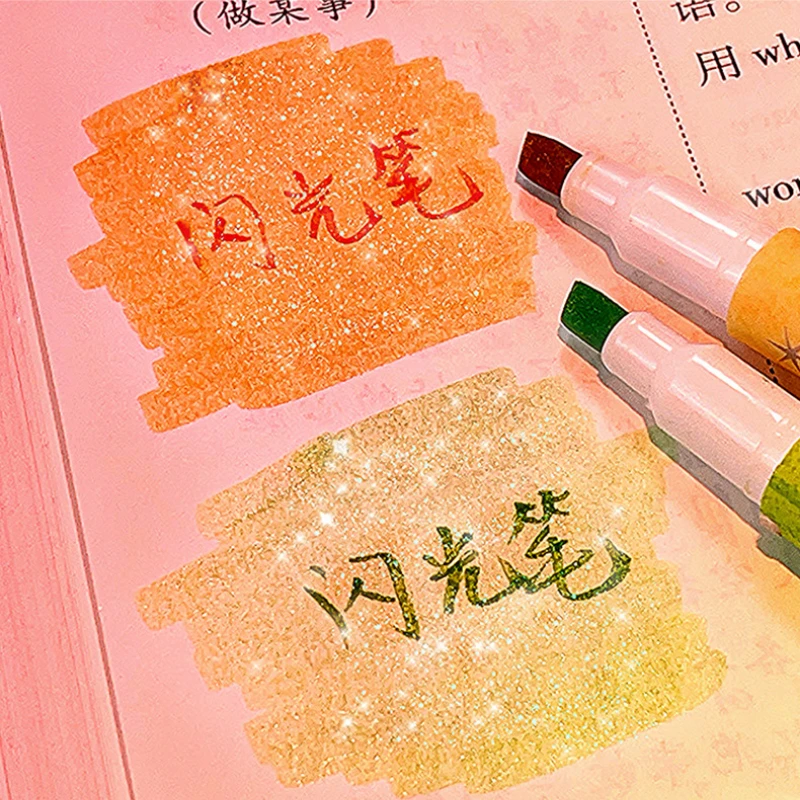 （做某事）
语。
用 wh
wor
闪光笔
闪光笔